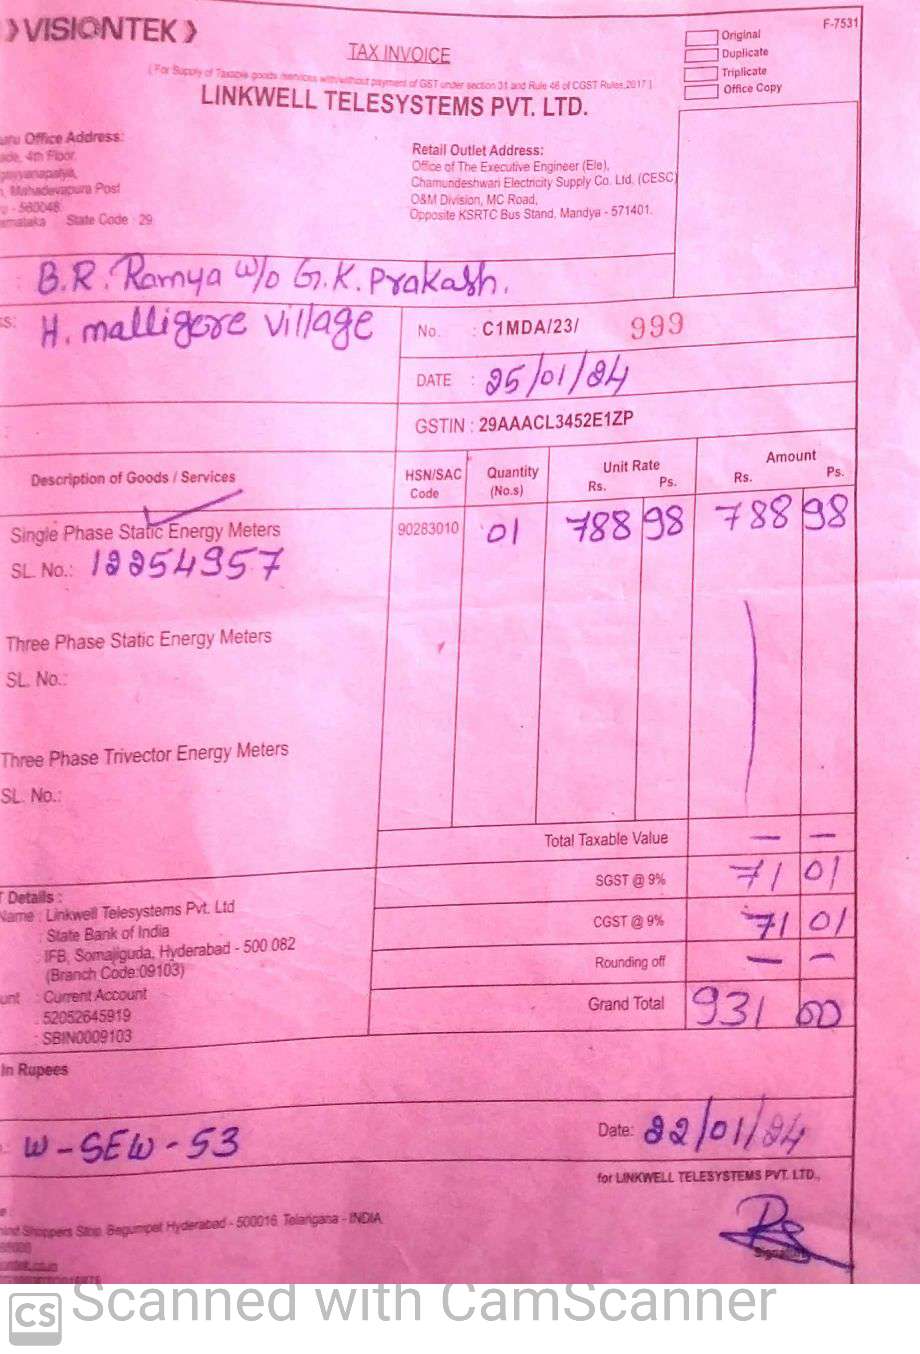 VISIONTEK
F-7531
TAX INVOICE
Original
Duplicate
Triplicate
Office Copy
( For Supply of Taxable goods /services with/without payment of GST under section 31 and Rule 46 of CGST Rules,2017 )
LINKWELL TELESYSTEMS PVT. LTD.
Office Address:
4th Floor,
Mahadevapura Post
- 560048
State Code : 29
Retail Outlet Address:
Office of The Executive Engineer (Ele),
Chamundeshwari Electricity Supply Co. Ltd. (CESC)
O&M Division, MC Road,
Opposite KSRTC Bus Stand, Mandya - 571401.
: B.R. Ramya W/o G.K. Prakash.
H. malligere village
No. : C1MDA/23/ 999
DATE : 25/01/24
GSTIN : 29AAACL3452E1ZP
Description of Goods / Services
HSN/SAC Code
Quantity (No.s)
Unit Rate
Rs. Ps.
Amount
Rs. Ps.
Single Phase Static Energy Meters 90283010 01 788 98 788 98
SL. No.: 12254957
Three Phase Static Energy Meters
SL. No.:
Three Phase Trivector Energy Meters
SL. No.:
Total Taxable Value — —
SGST @ 9% 71 01
CGST @ 9% 71 01
Rounding off — —
Grand Total 931 00
Details :
Name : Linkwell Telesystems Pvt. Ltd
: State Bank of India
: IFB, Somajiguda, Hyderabad - 500 082
(Branch Code:09103)
: Current Account
: 52052645919
: SBIN0009103
In Rupees
W-SEW-53
Date: 22/01/24
for LINKWELL TELESYSTEMS PVT. LTD.,
Shoppers Stop, Begumpet Hyderabad - 500016, Telangana - INDIA
CS Scanned with CamScanner